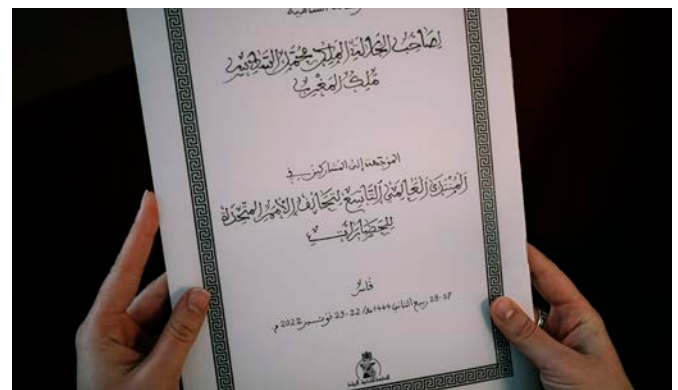 السامية
لصاحب الجلالة الملك محمد السادس
ملك المغرب
الموجهة إلى المشاركين في
المنتدى العالمي التاسع لتحالف الأمم المتحدة
للحضارات
فاس
27-28 ربيع الثاني 1444هـ / 22-23 نونبر 2022م